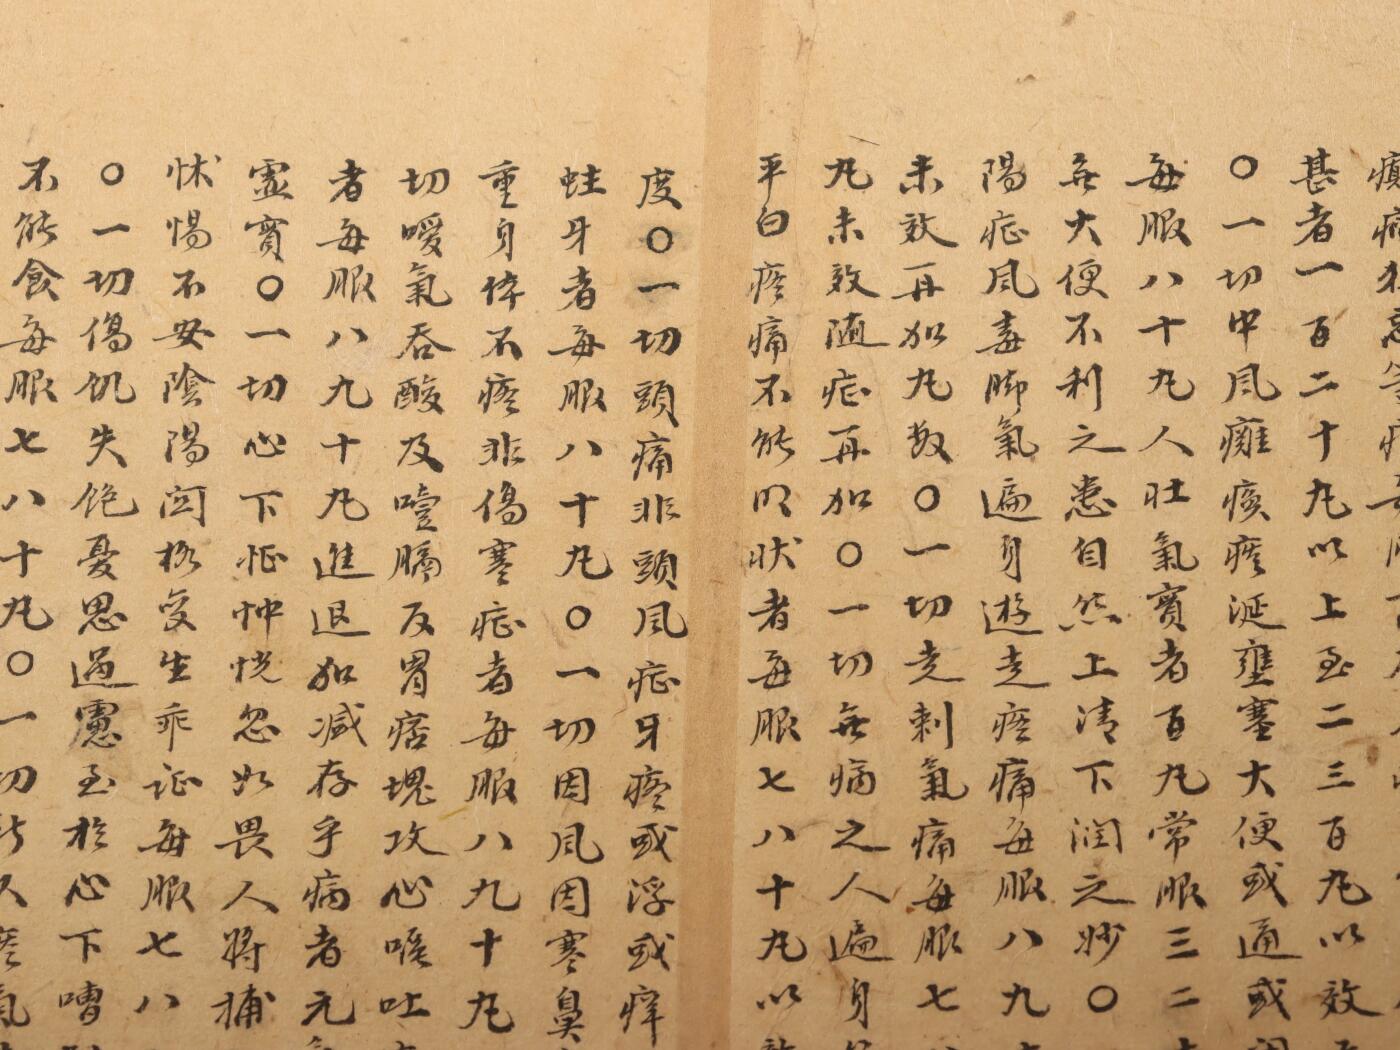 癲癇
甚者一百二十丸以上至二三百丸以效
〇一切中風癱瘓痰涎壅塞大便或通或
每服八十丸人壯氣實者百丸常服三二
無大便不利之患自然上清下潤之妙〇
陽症風毒腳氣遍身遊走疼痛每服八九
未效再加丸數〇一切走刺氣痛每服七
丸未效隨症再加〇一切無病之人遍身
平白疼痛不能明狀者每服七八十丸以效
度〇一切頭痛非頭風症牙疼或浮或痒
蛀牙者每服八十丸〇一切因風因寒鼻
重身体不疼非傷寒症者每服八九十丸
切噯氣吞酸及噎膈反胃痞塊攻心喉吐
者每服八九十丸進退加減存乎病者元
虛實〇一切心下怔忡恍忽如畏人將捕
怵惕不安陰陽関格變生乖証每服七八
〇一切傷饥失飽憂思過慮至於心下嘈
不能食每服七八十丸〇一切